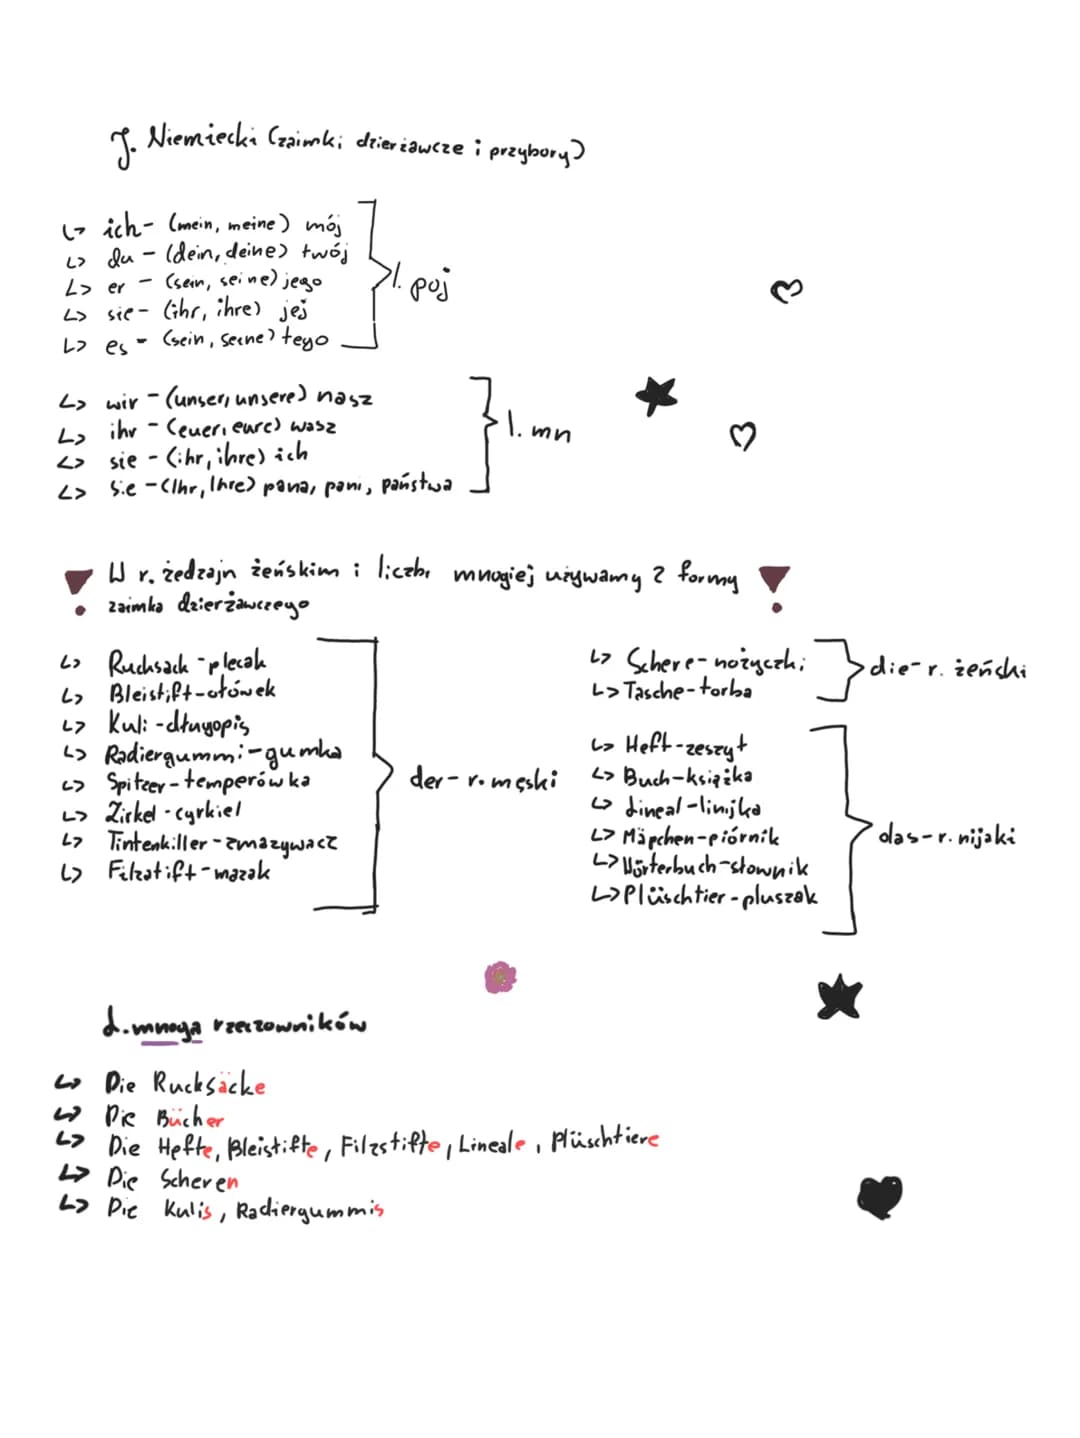 J. Niemiecki (zaimki dzierżawcze i przybory)
↳ ich - (mein, meine) mój
↳ du - (dein, deine) twój
↳ er - (sein, seine) jego
↳ sie - (ihr, ihre) jej
↳ es - (sein, seine) tego
l. poj
↳ wir - (unser, unsere) nasz
↳ ihr - (euer, eure) wasz
↳ sie - (ihr, ihre) ich
↳ Sie - (Ihr, Ihre) pana, pani, państwa
l. mn
W r. żedzajn żeńskim i liczbi mnogiej używamy 2 formy
zaimka dzierżawczego
↳ Rucksack - plecak
↳ Bleistift - ołówek
↳ Kuli - długopis
↳ Radiergummi - gumka
↳ Spitzer - temperówka
↳ Zirkel - cyrkiel
↳ Tintenkiller - zmazywacz
↳ Filzstift - mazak
der - r. męski
↳ Schere - nożyczki
↳ Tasche - torba
die - r. żeński
↳ Heft - zeszyt
↳ Buch - książka
↳ Lineal - linijka
↳ Mäpchen - piórnik
↳ Wörterbuch - słownik
↳ Plüschtier - pluszak
das - r. nijaki
L. mnoga rzeczowników
↳ Die Rucksäcke
↳ Die Bücher
↳ Die Hefte, Bleistifte, Filzstifte, Lineale, Plüschtiere
↳ Die Scheren
↳ Die Kulis, Radiergummis